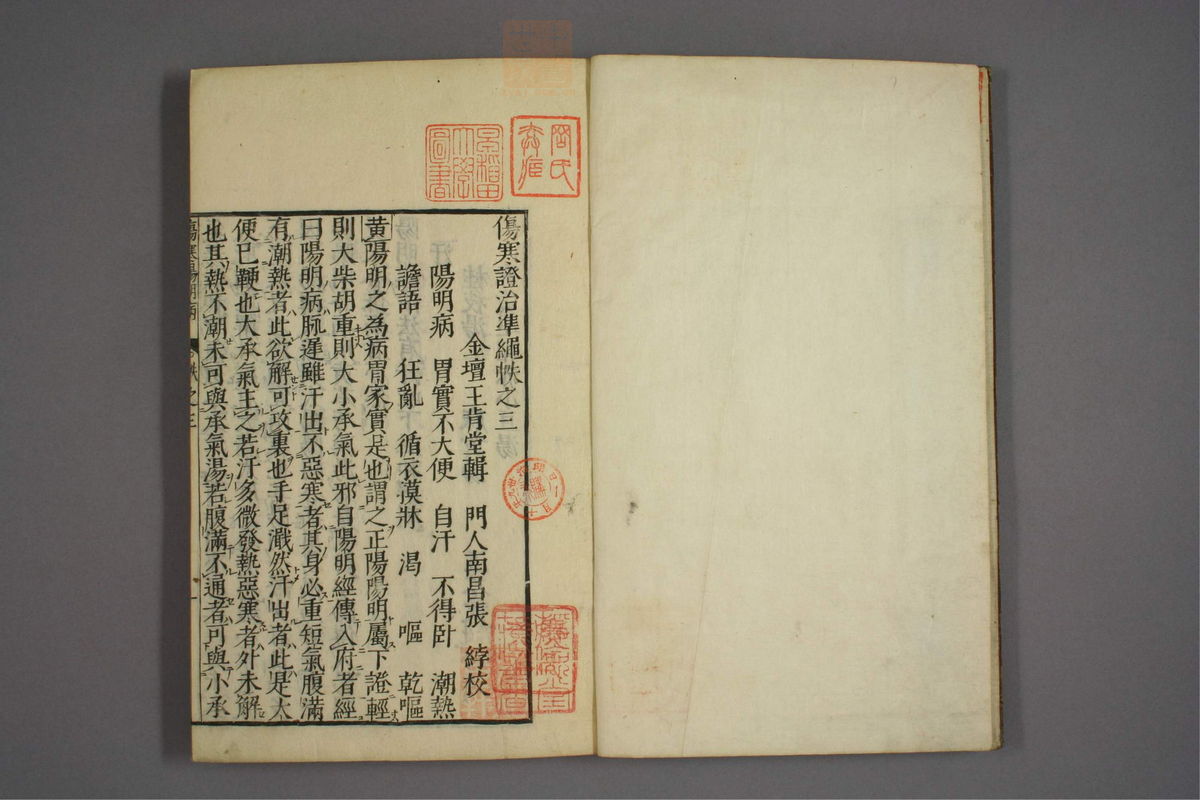 傷寒證治凖繩帙之三
金壇王肯堂輯　門人南昌張　綍校
陽明病　胃實不大便　自汗　不得臥　潮熱
譫語　狂亂　循衣摸牀　渴　嘔　乾嘔
黄陽明之為病胃家實是也謂之正陽陽明屬下證輕
則大柴胡重則大小承氣此邪自陽明經傳入府者經
曰陽明病脈遲雖汗出不惡寒者其身必重短氣腹滿
有潮熱者此欲解可攻裏也手足濈然汗出者此是大
便已鞕也大承氣主之若汗多微發熱惡寒者外未解
也其熱不潮未可與承氣湯若腹滿不通者可與小承
早稻田大學圖書